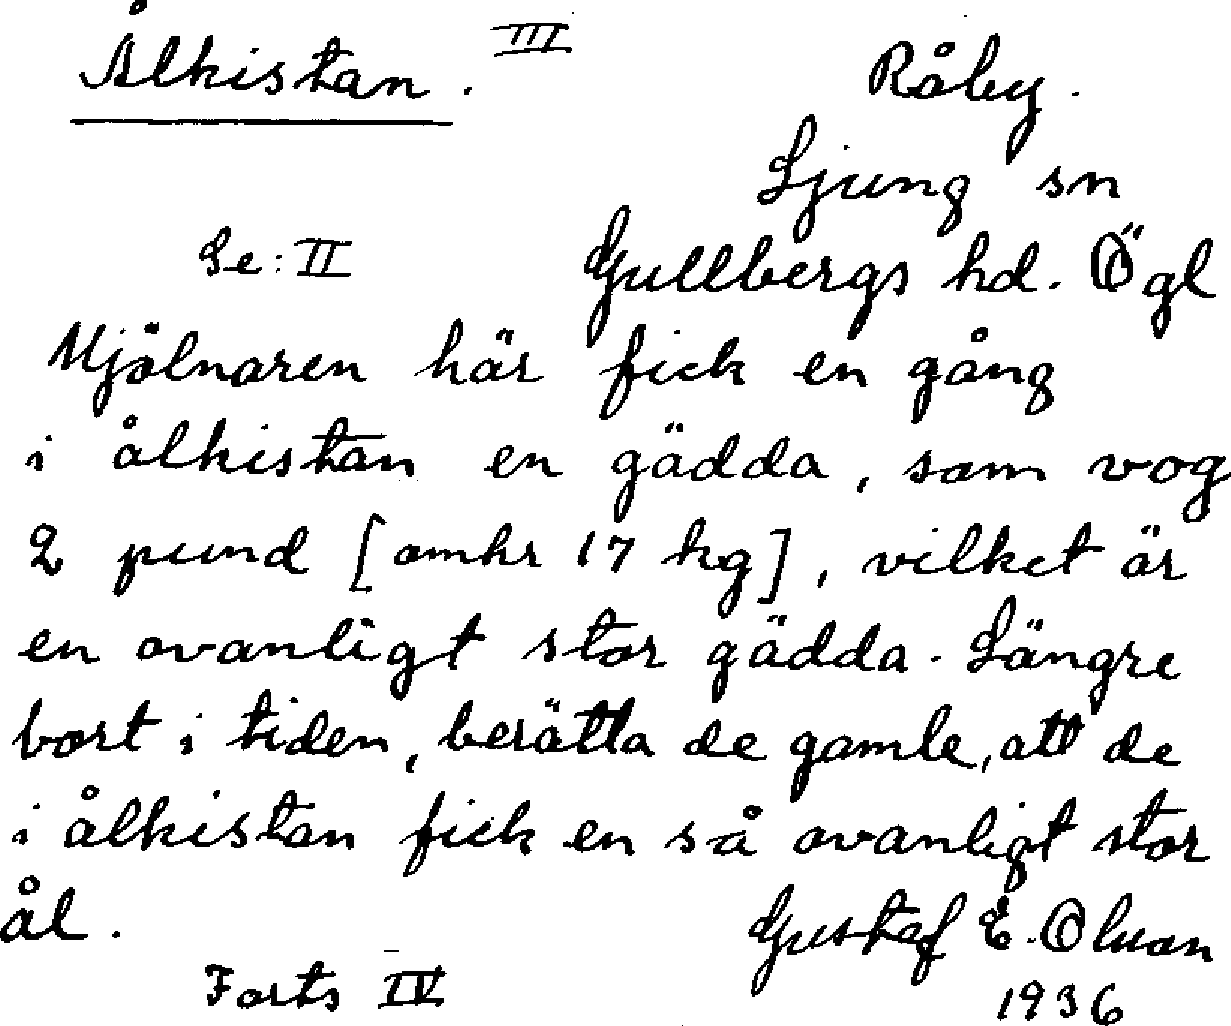 Ålkistan. III
Råby.
Ljung sn
Se: II
Gullbergs hd. Ögl
Mjölnaren här fick en gång
i ålkistan en gädda, som vog
2 pund [omkr 17 kg], vilket är
en ovanligt stor gädda. Längre
bort i tiden, berätta de gamle, att de
i ålkistan fick en så ovanligt stor
ål.
Gustaf E. Olson
Forts IV
1936